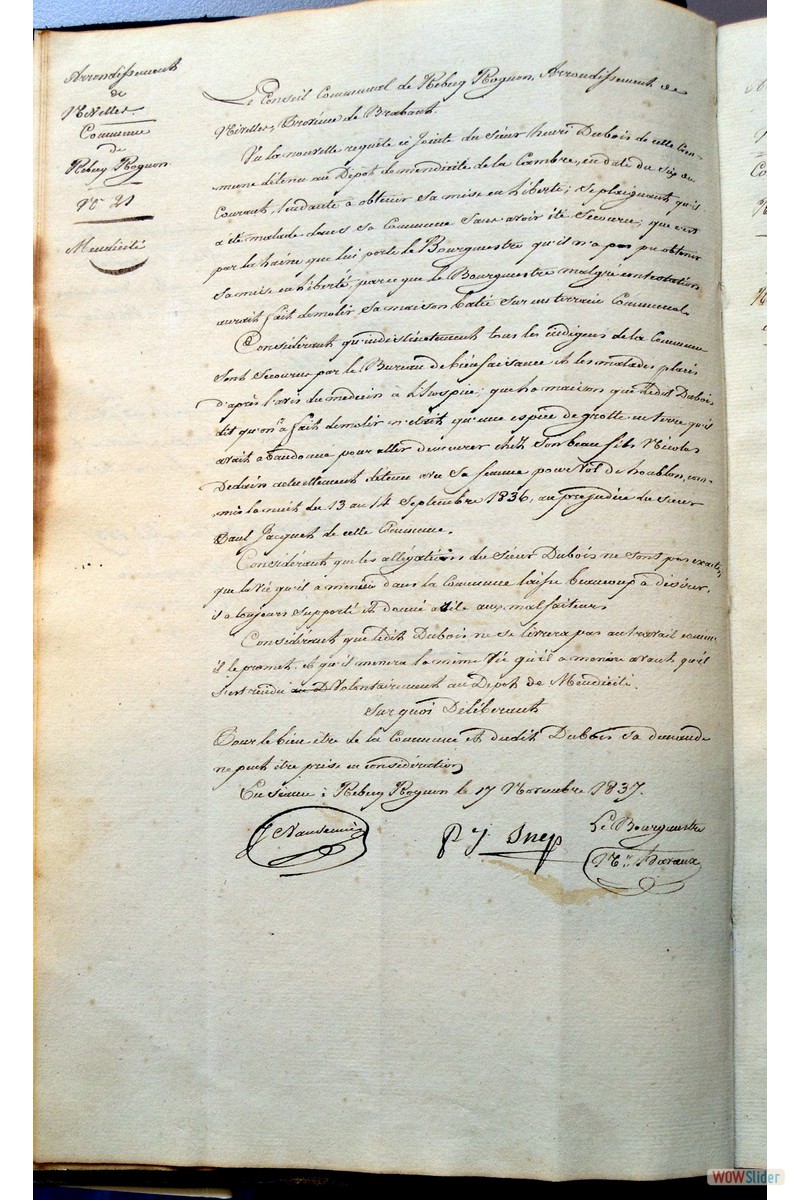 Arrondissement
de
Nivelles
Commune
de
Rebecq Rognon
N° 21
Mendicité
Le Conseil Communal de Rebecq Rognon, Arrondissement de
Nivelles, Province de Brabant.
Vu la nouvelle requête ci jointe du Sieur henri Dubois de cette Com-
mune détenu au Dépôt de mendicité de la Cambre, en date du Six du
Courant, tendante à obtenir Sa mise en liberté; Se plaignant qu'il
a été malade dans Sa Commune Sans avoir été Secouru; que c'est
par la haine que lui porte le Bourgmestre qu'il n'a pas pu obtenir
Sa mise en liberté, parce que le Bourgmestre malgré contestation
aurait fait demolir Sa maison batie Sur un terrain Communal.
Considérant qu'indistinctement tous les indigens de la Commune
Sont Secourus par le Bureau de bienfaisance et les malades placés
d'après l'avis du medecin à l'hospice; que la maison que ledit Dubois
dit qu'on a fait demolir n'était qu'une espèce de grotte en terre qu'il
avait abandonné pour aller demeurer chez Son beau fils Nicolas
Dedain actuellement détenu avec Sa femme pour Vol de houblon, com-
mis la nuit du 13 au 14 Septembre 1836, au préjudice du Sieur
Paul Jacquet de cette Commune.
Considérant que les allégations du Sieur Dubois ne Sont pas exactes,
que la Vie qu'il a menée dans la Commune laisse beaucoup à désirer,
il a toujours Supporté et donné asile aux malfaiteurs
Considérant que ledit Dubois ne Se livrera pas au travail comme
il le promet, et qu'il menera la même Vie qu'il a menée avant qu'il
S'est rendu au D Volontairement au Dépôt de Mendicité.
Sur quoi Délibérant
Pour le bien être de la Commune et dudit Dubois Sa demande
ne peut être prise en considération
En Séance à Rebecq Rognon le 17 Novembre 1837.
Le Bourgmestre
P J Snep
WOWSlider